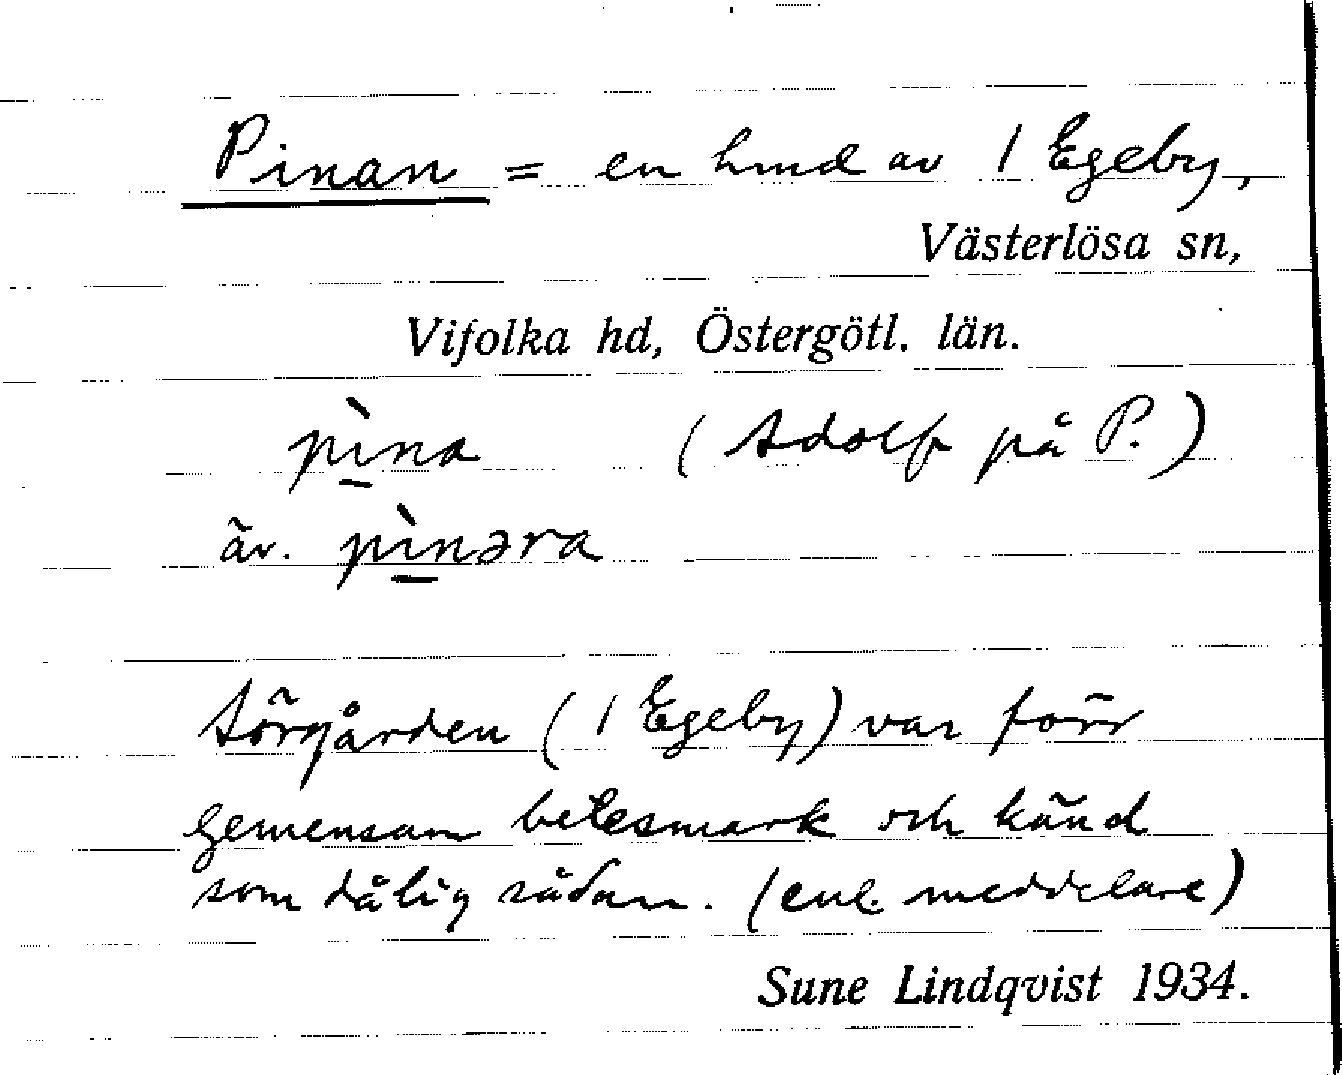 Pinan = en hmd av 1 Egeby,
Västerlösa sn,
Vifolka hd, Östergötl. län.
pìna (Adolf på P.)
äv. pìnəra
Sörgården (1 Egeby) var förr
gemensam betesmark och känd
som dålig sådan. (enl. meddelare)
Sune Lindqvist 1934.